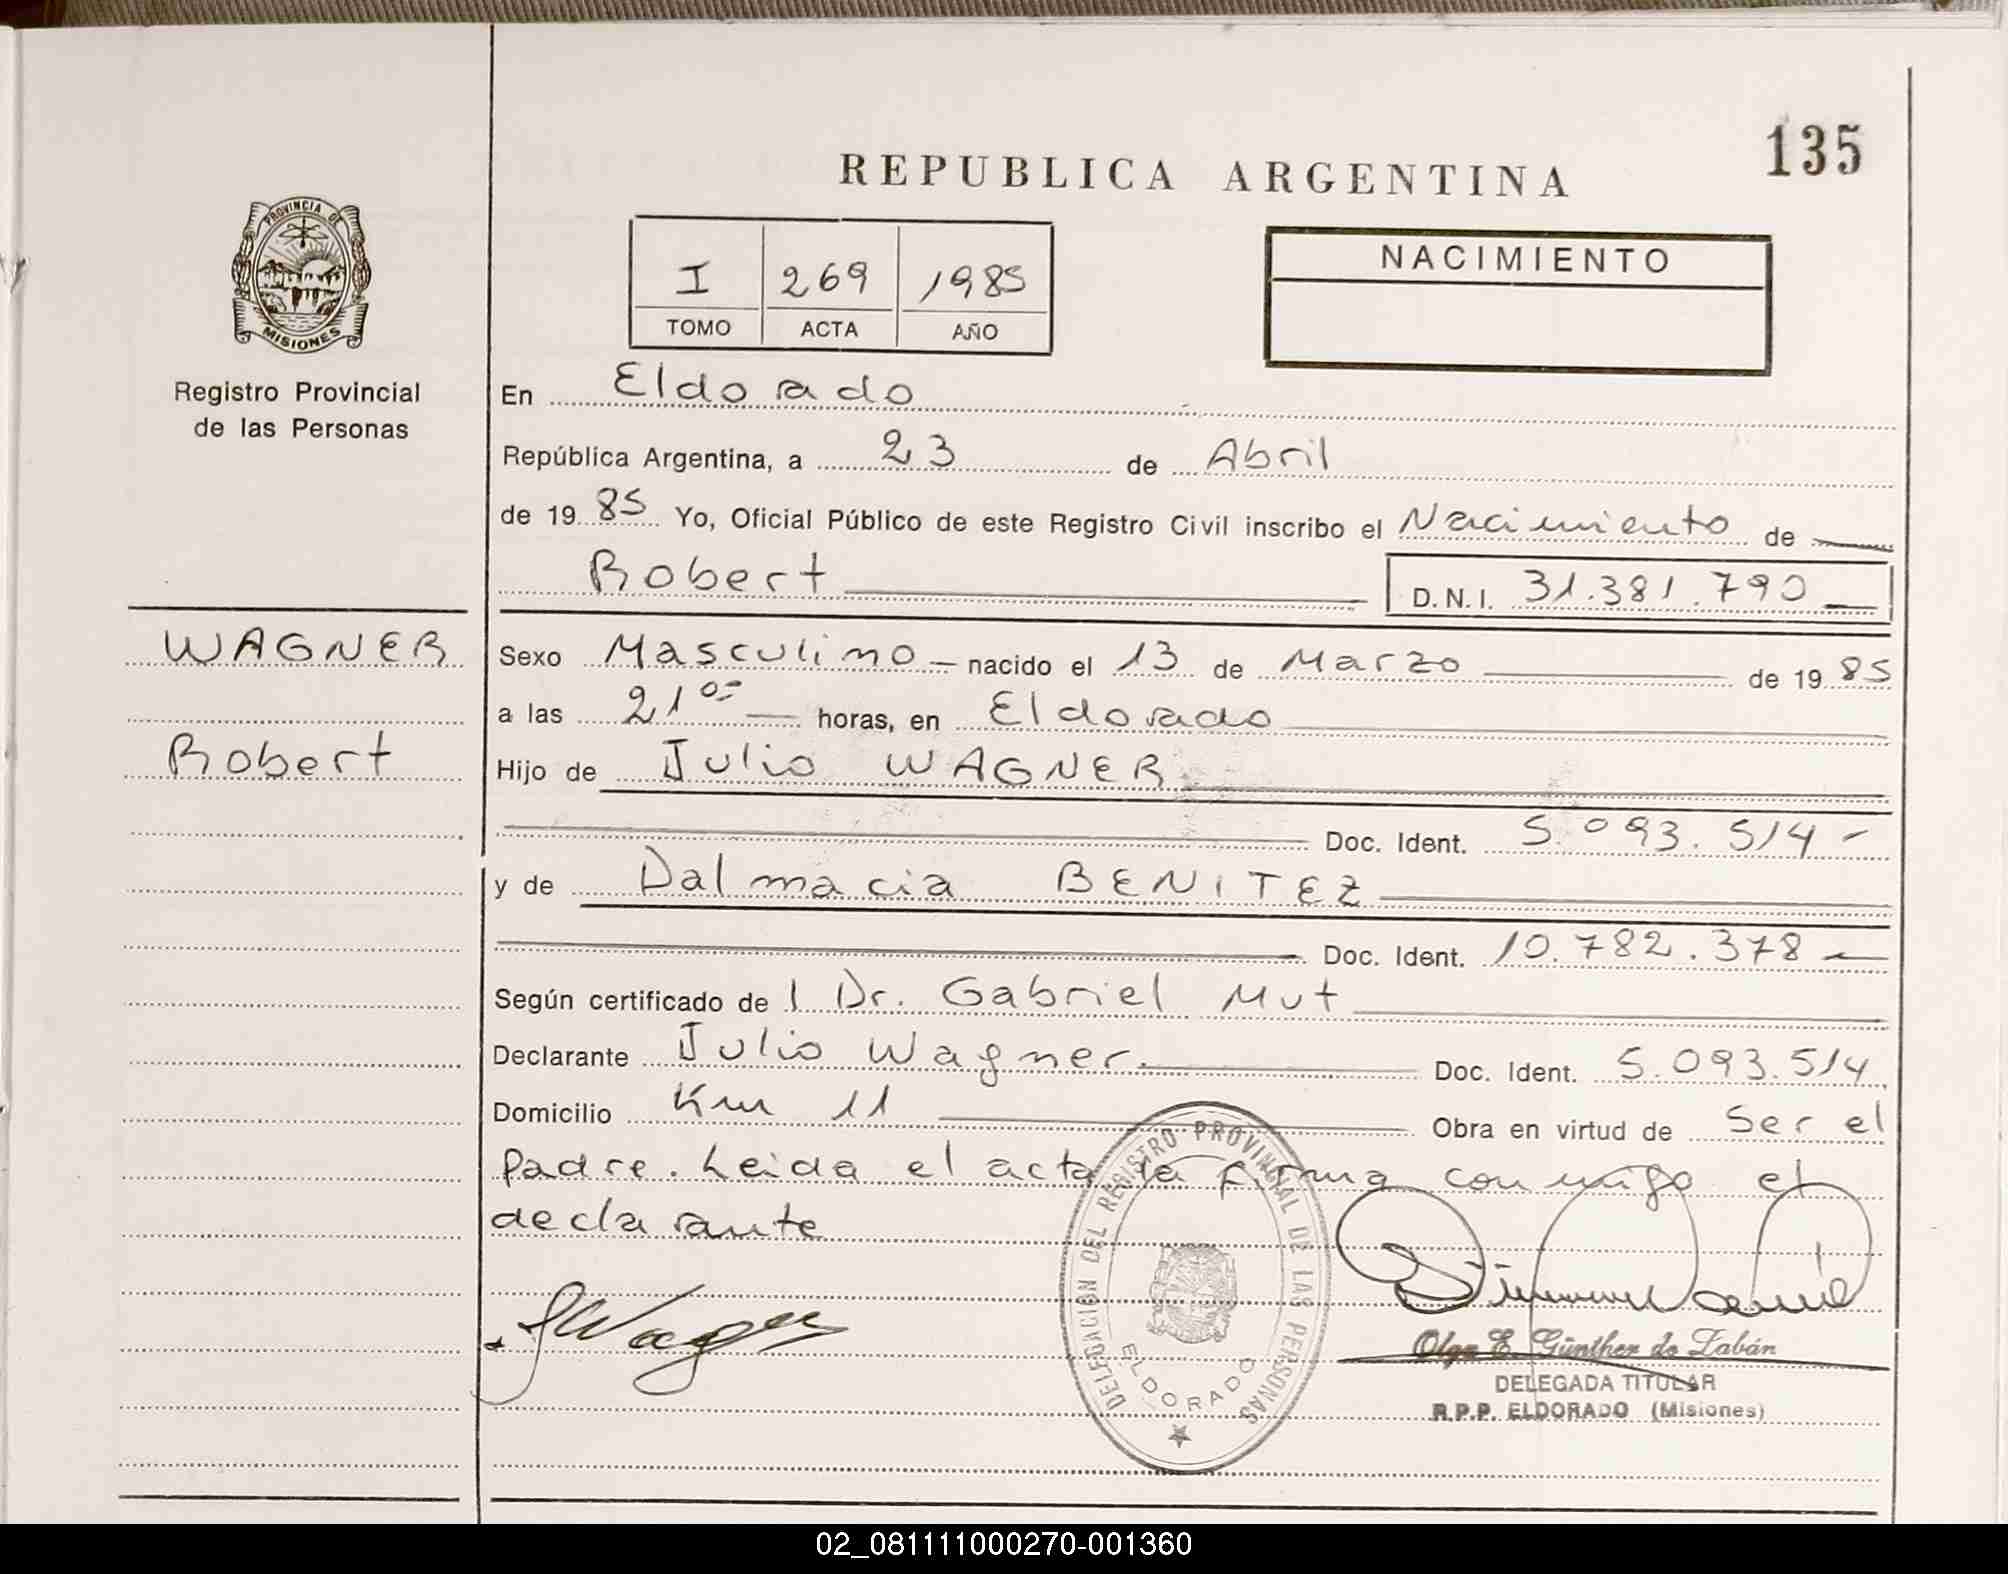 135
REPUBLICA ARGENTINA
PROVINCIA DE
MISIONES
I 269 1985
TOMO ACTA AÑO
NACIMIENTO
Registro Provincial
de las Personas
En Eldorado
República Argentina, a 23 de Abril
de 1985 Yo, Oficial Público de este Registro Civil inscribo el Nacimiento de
Robert D.N.I. 31.381.790
WAGNER
Robert
Sexo Masculino nacido el 13 de Marzo de 1985
a las 21 00 horas, en Eldorado
Hijo de Julio WAGNER
Doc. Ident. 5.093.514
y de Dalmacia BENITEZ
Doc. Ident. 10.782.378
Según certificado de l Dr. Gabriel Mut
Declarante Julio Wagner. Doc. Ident. 5.093.514
Domicilio Km 11 Obra en virtud de Ser el
padre. Leida el acta la firma conmigo el
declarante
DELEGACIÓN DEL REGISTRO PROVINCIAL DE LAS PERSONAS
ELDORADO
JWagner
Olga E. Günther de Zabán
DELEGADA TITULAR
R.P.P. ELDORADO (Misiones)
02_081111000270-001360